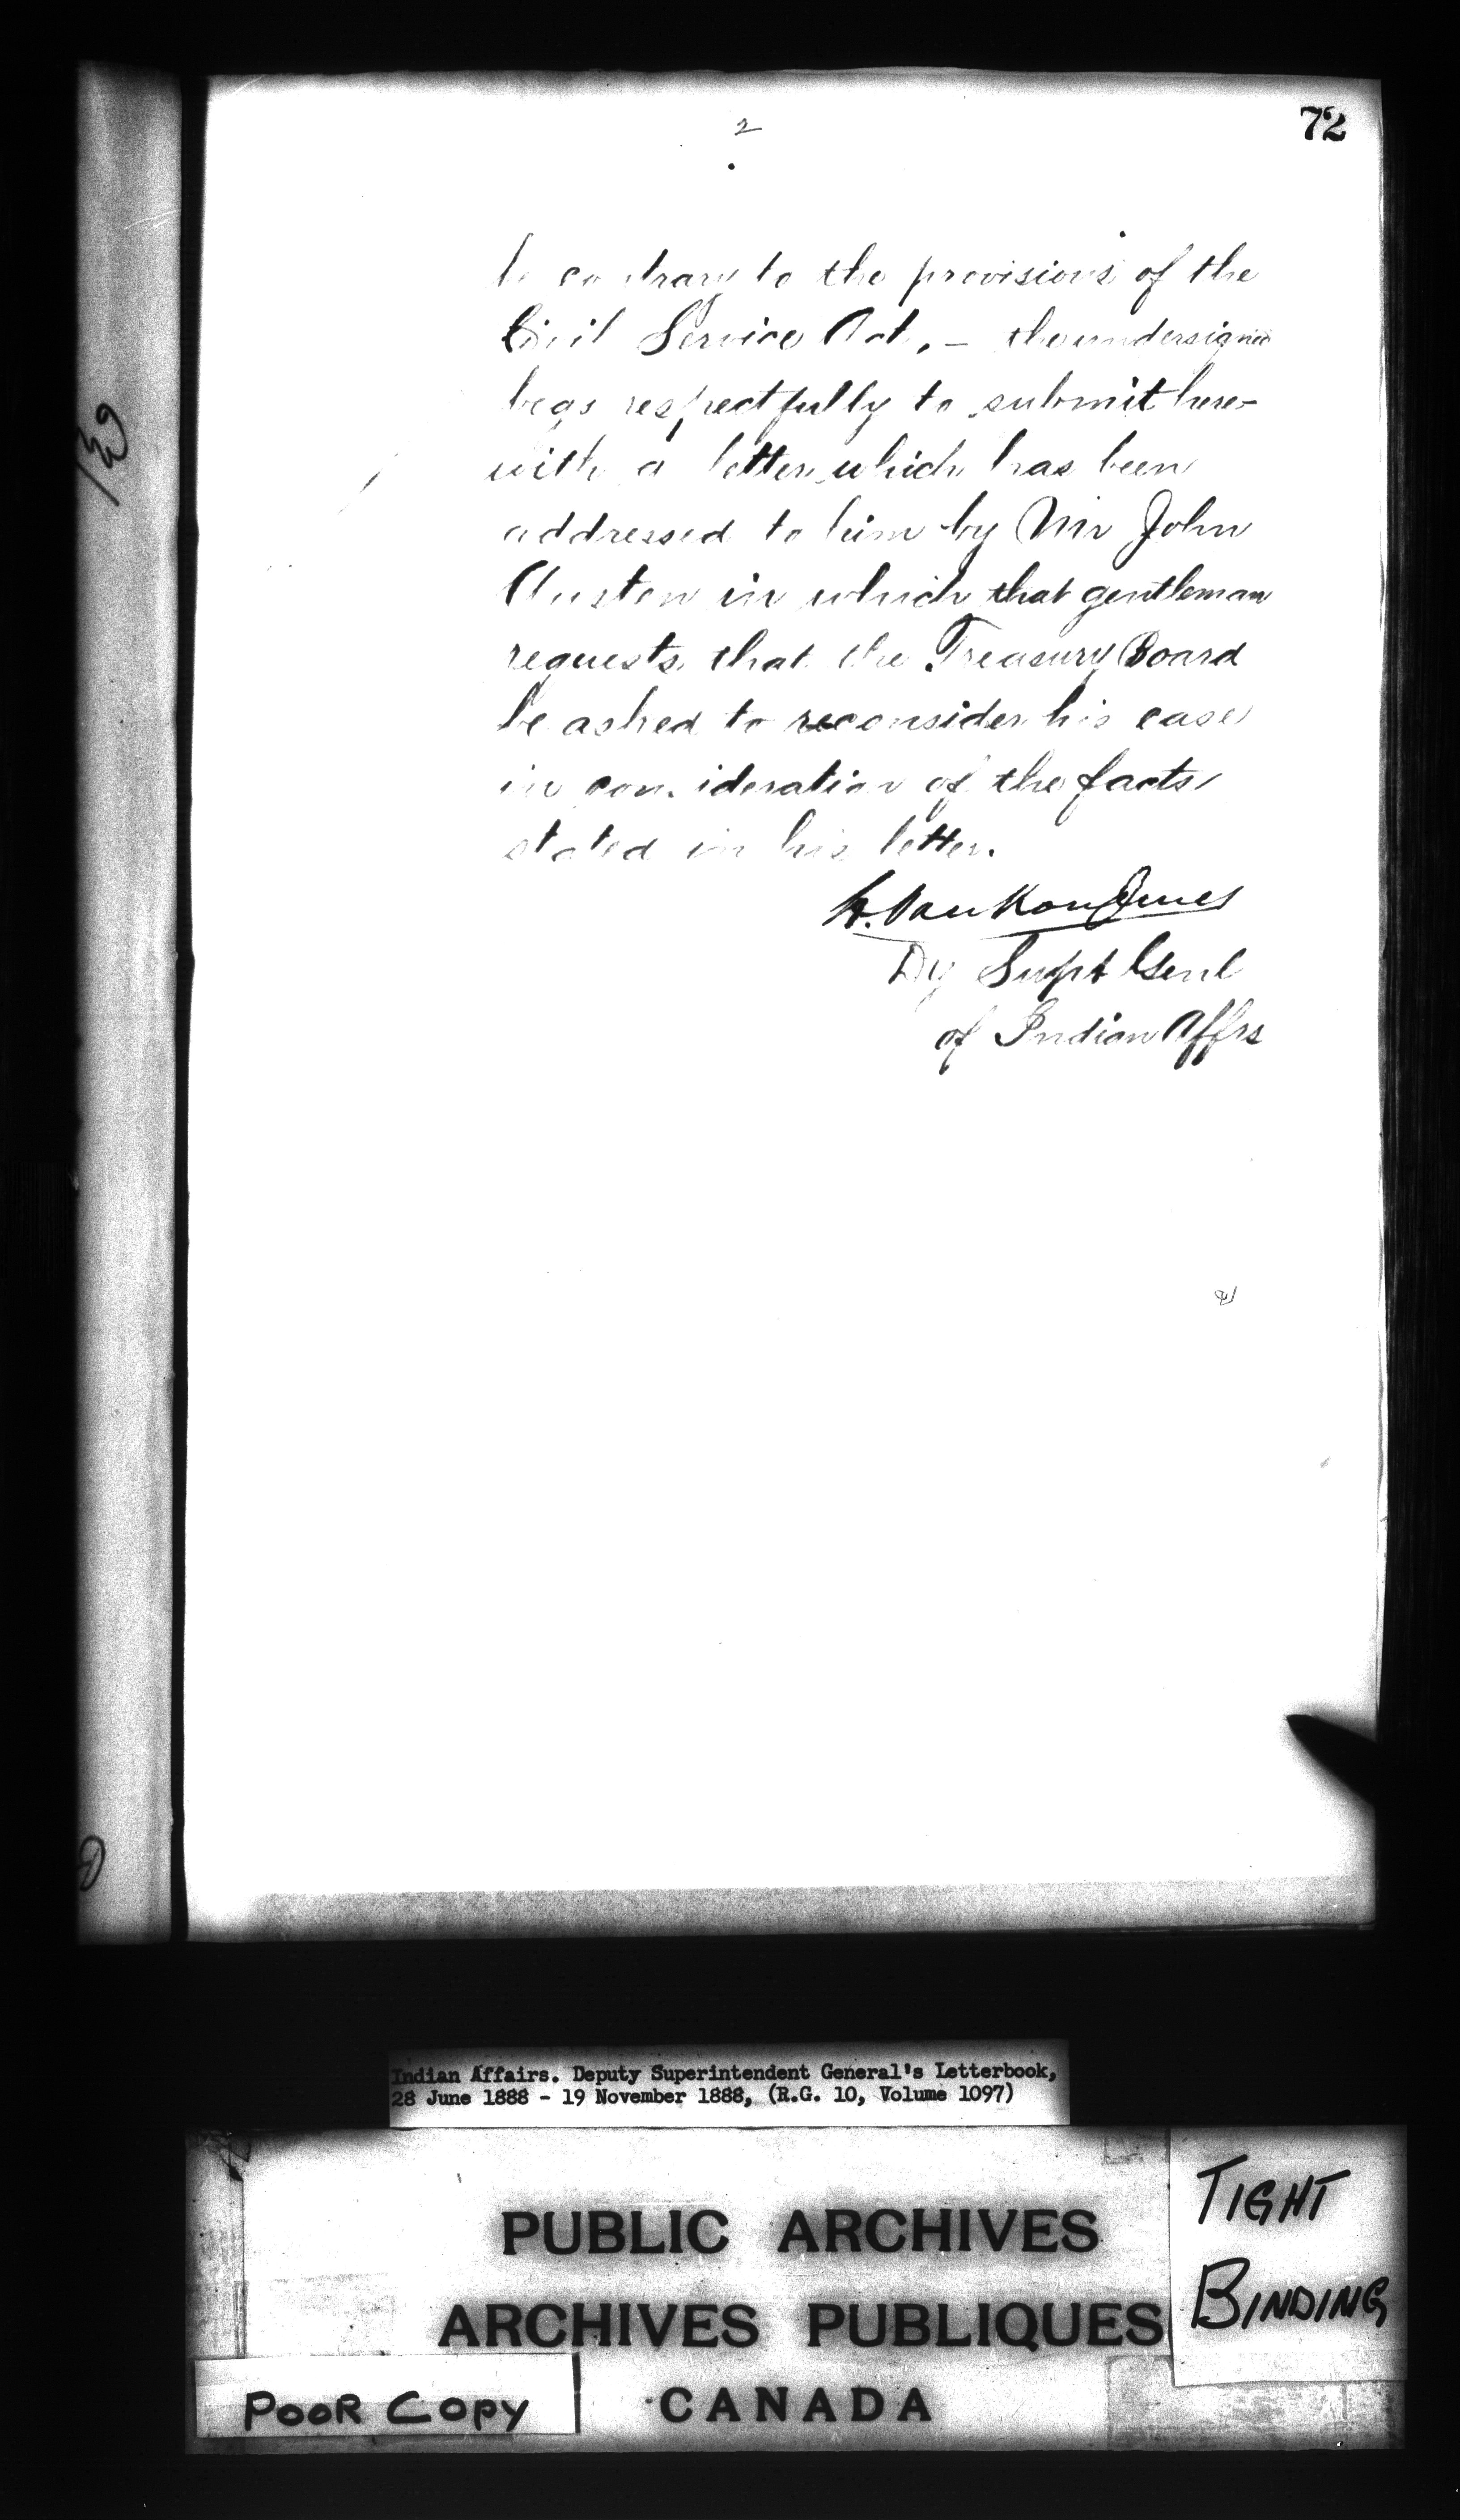 2
72
be contrary to the provisions of the
Civil Service Act, – the undersigned
begs respectfully to submit here-
with a letter which has been
addressed to him by Mr John
Austen in which that gentleman
requests that the Treasury Board
be asked to reconsider his case
in consideration of the facts
stated in his letter.
L. VanKoughnet
Dy Supt Genl
of Indian Affrs
Indian Affairs. Deputy Superintendent General's Letterbook,
28 June 1888 - 19 November 1888, (R.G. 10, Volume 1097)
PUBLIC ARCHIVES
ARCHIVES PUBLIQUES
CANADA
TIGHT
BINDING
POOR COPY